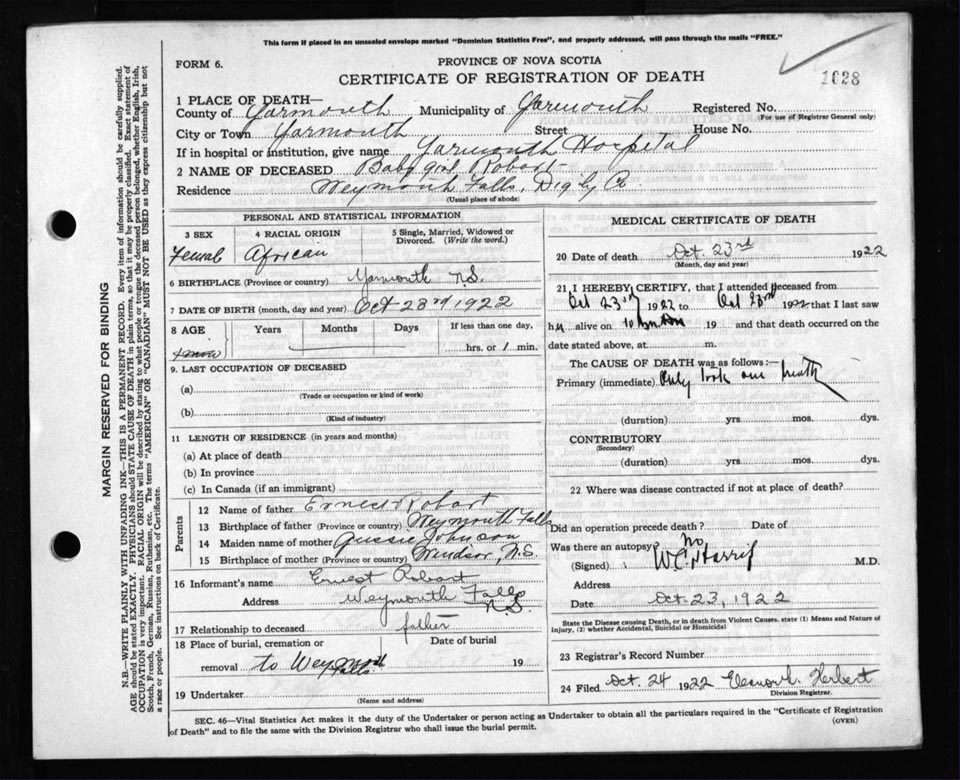 This form if placed in an unsealed envelope marked "Dominion Statistics Free", and properly addressed, will pass through the mails "FREE."
FORM 6.
PROVINCE OF NOVA SCOTIA
CERTIFICATE OF REGISTRATION OF DEATH
1028
1 PLACE OF DEATH—
County of Yarmouth Municipality of Yarmouth Registered No.
(For use of Registrar General only)
City or Town Yarmouth Street House No.
If in hospital or institution, give name Yarmouth Hospital
2 NAME OF DECEASED Baby girl Robart
Residence Weymouth Falls, Digby Co.
(Usual place of abode)
PERSONAL AND STATISTICAL INFORMATION
3 SEX 4 RACIAL ORIGIN 5 Single, Married, Widowed or Divorced. (Write the word.)
Female African
6 BIRTHPLACE (Province or country) Yarmouth N.S.
7 DATE OF BIRTH (month, day and year) Oct 23rd 1922
8 AGE Years Months Days If less than one day,
hrs. or 1 min.
9. LAST OCCUPATION OF DECEASED
(a)
(Trade or occupation or kind of work)
(b)
(Kind of industry)
11 LENGTH OF RESIDENCE (in years and months)
(a) At place of death
(b) In province
(c) In Canada (if an immigrant)
Parents
12 Name of father Ernest Robart
13 Birthplace of father (Province or country) Weymouth Falls
14 Maiden name of mother Gussie Johnson
15 Birthplace of mother (Province or country) Windsor, N.S.
16 Informant's name Ernest Robart
Address Weymouth Falls N.S.
17 Relationship to deceased father
18 Place of burial, cremation or Date of burial
removal to Weymouth Falls 19
19 Undertaker
(Name and address)
MEDICAL CERTIFICATE OF DEATH
20 Date of death Oct 23rd 1922
(Month, day and year)
21 I HEREBY CERTIFY, that I attended deceased from
Oct 23rd 1922 to Oct 23rd 1922 that I last saw
h alive on 19 and that death occurred on the
date stated above, at m.
The CAUSE OF DEATH was as follows:—
Primary (immediate) Only took one breath
(duration) yrs. mos. dys.
CONTRIBUTORY
(Secondary)
(duration) yrs. mos. dys.
22 Where was disease contracted if not at place of death?
Did an operation precede death? Date of
Was there an autopsy? No
(Signed) W.C. Harris M.D.
Address
Date Oct. 23, 1922
State the Disease causing Death, or in death from Violent Causes, state (1) Means and Nature of Injury, (2) whether Accidental, Suicidal or Homicidal
23 Registrar's Record Number
24 Filed Oct. 24 1922 Herbert
Division Registrar.
SEC. 46—Vital Statistics Act makes it the duty of the Undertaker or person acting as Undertaker to obtain all the particulars required in the "Certificate of Registration
of Death" and to file the same with the Division Registrar who shall issue the burial permit.
(OVER)
MARGIN RESERVED FOR BINDING
N.B.—WRITE PLAINLY WITH UNFADING INK—THIS IS A PERMANENT RECORD. Every item of information should be carefully supplied.
AGE should be stated EXACTLY. PHYSICIANS should STATE CAUSE OF DEATH in plain terms, so that it may be properly classified. Exact statement of
OCCUPATION is very important. RACIAL ORIGIN will be described by stating to what people or tongue the deceased person belonged, whether English, Irish,
Scotch, French, German, Russian, Ruthenian, etc. The terms "AMERICAN" OR "CANADIAN" MUST NOT BE USED as they express citizenship but not
a race or people. See instructions on back of Certificate.